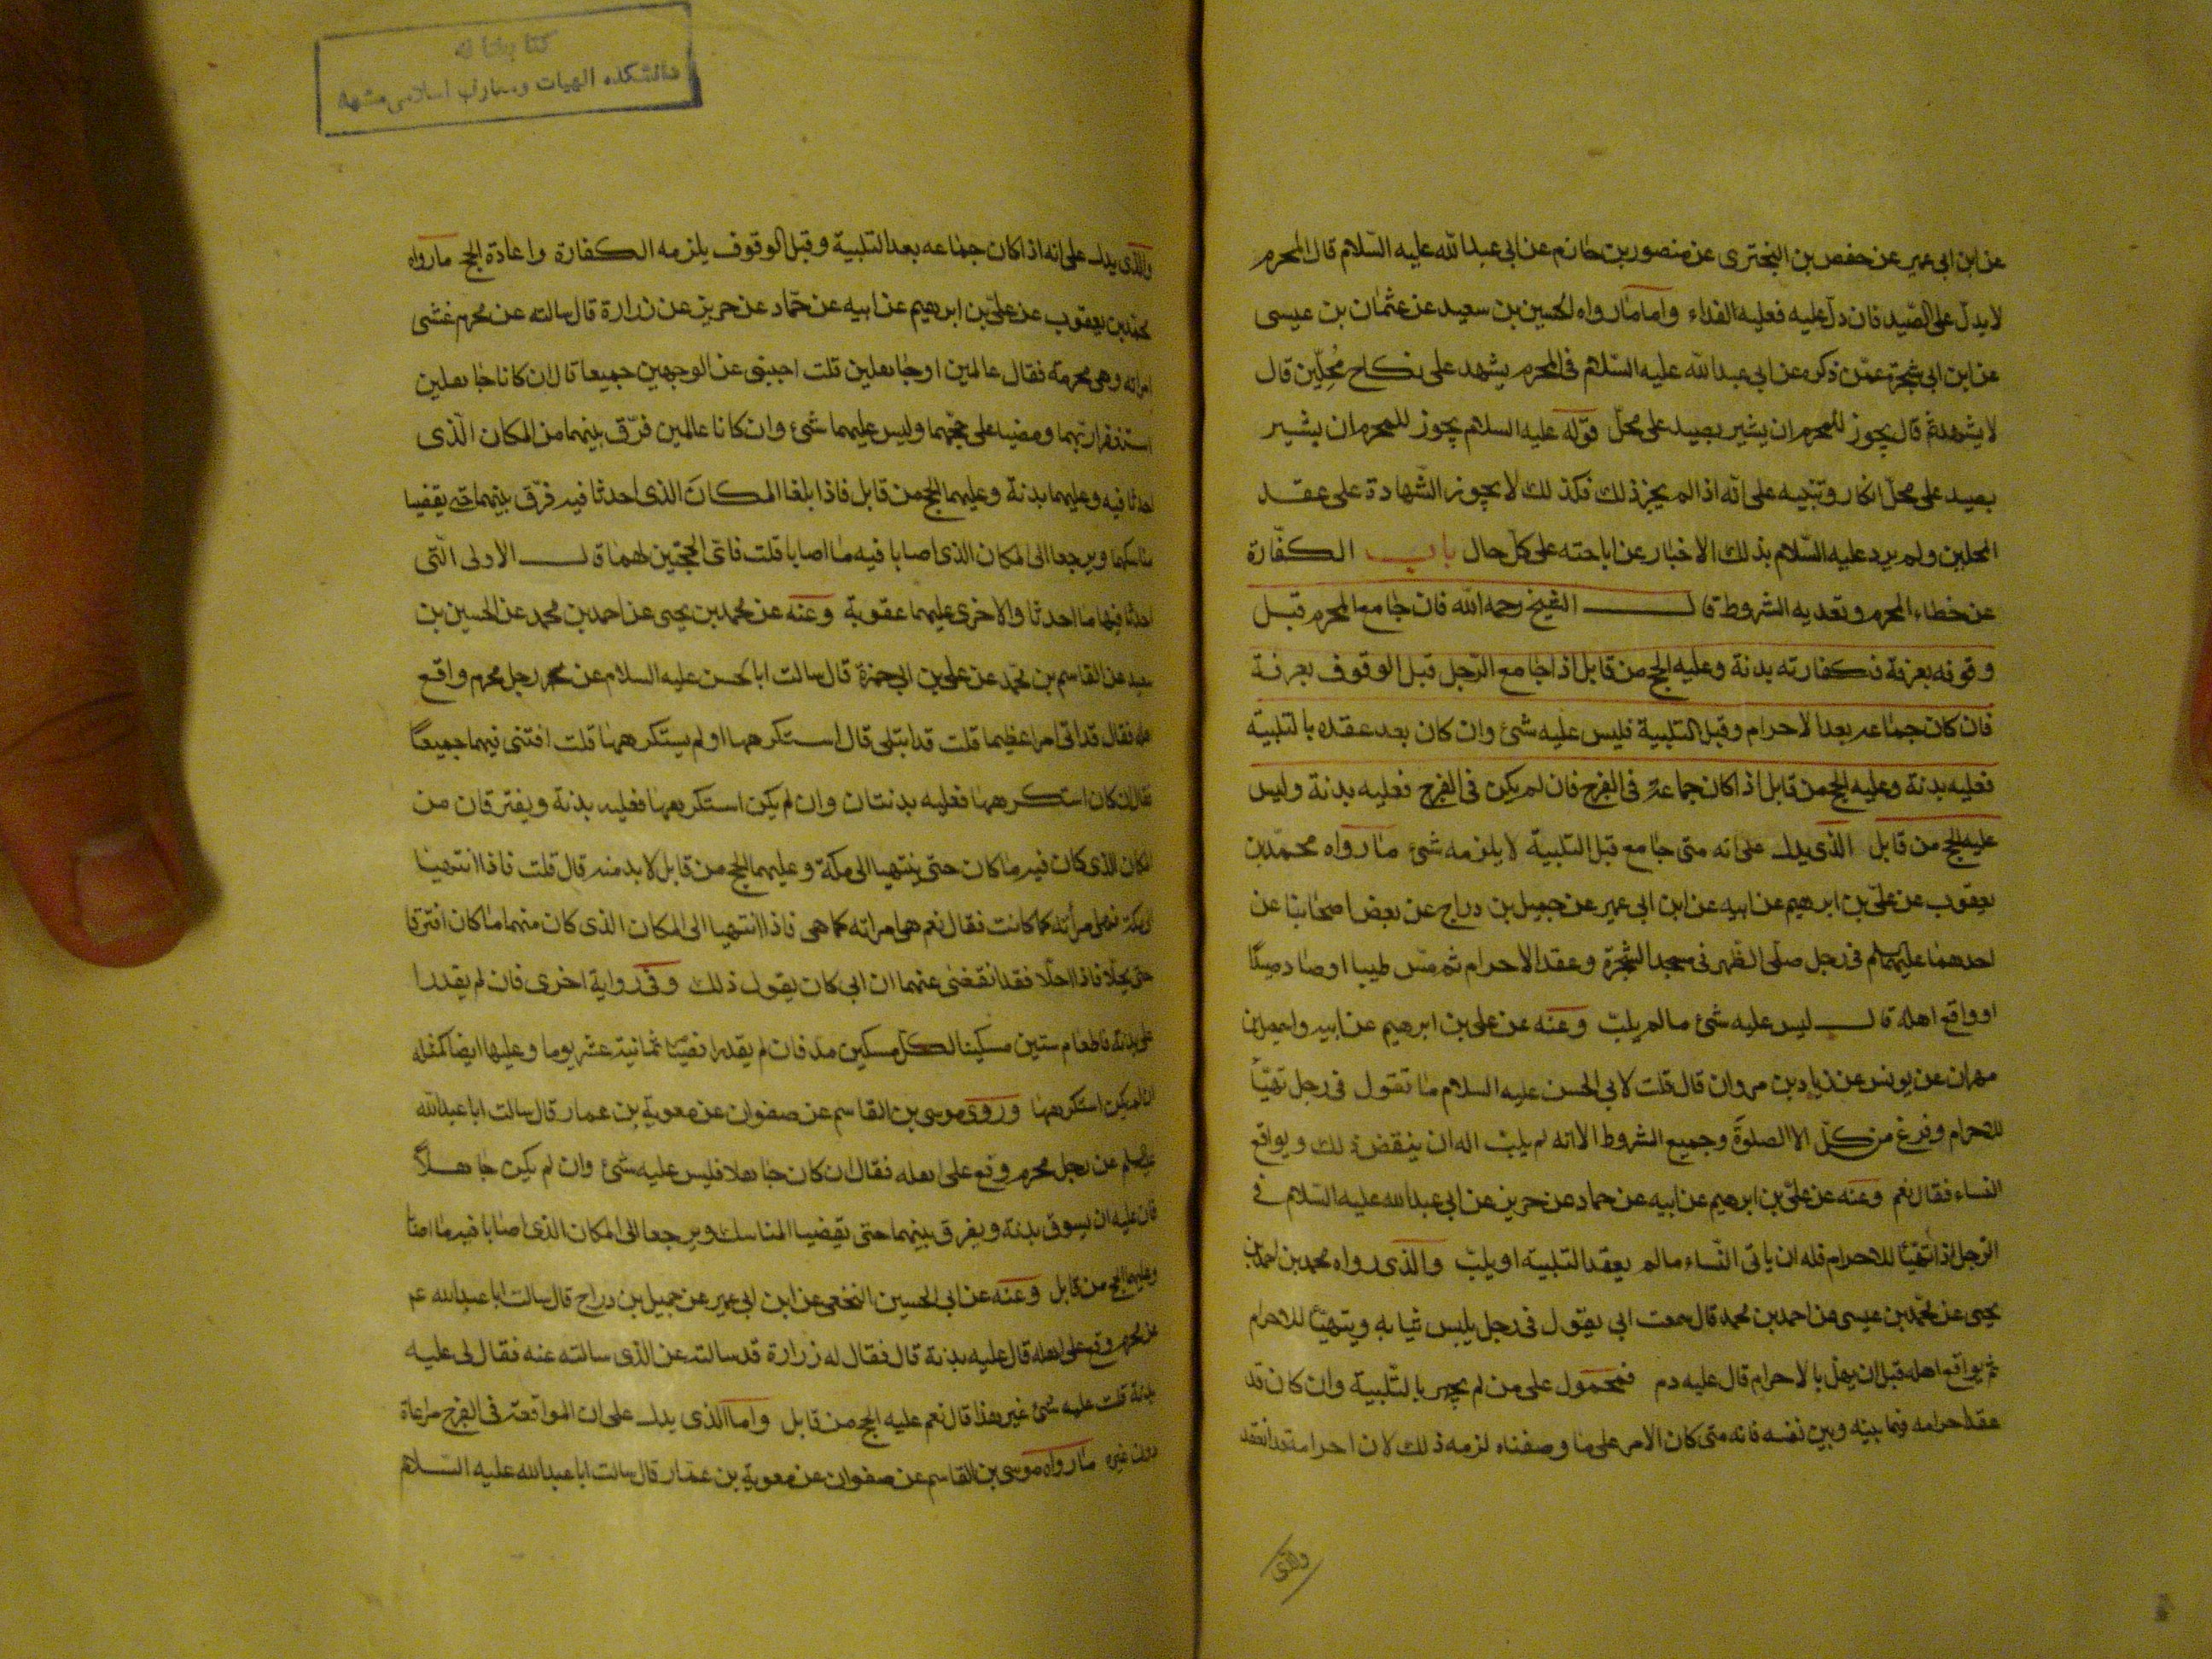 عن ابن ابي عمير عن حفص بن البختري عن منصور بن حازم عن ابي عبد الله عليه السلام قال المحرم
لا يدل على الصيد فان دل عليه فعليه الفداء واما ما رواه الحسين بن سعيد عن عثمان بن عيسى
عن ابن ابي شجرة عمن ذكره عن ابي عبد الله عليه السلام في المحرم يشهد على نكاح محلين قال
لا يشهد ثم قال يجوز للمحرم ان يشير بصيد على محل قوله عليه السلام يجوز للمحرم ان يشير
بصيد على محل انكار وتنبيه على انه اذا لم يجز ذلك فكذلك لا يجوز الشهادة على عقد
المحلين ولم يرد عليه السلام بذلك الاخبار عن اباحته على كل حال باب الكفارة
عن خطاء المحرم وتعديه الشروط قال الشيخ رحمه الله فان جامع المحرم قبل
وقوفه بعرفة فكفارته بدنة وعليه الحج من قابل اذا جامع الرجل قبل الوقوف بعرفة
فان كان جماعه بعد الاحرام وقبل التلبية فليس عليه شئ وان كان بعد عقده بالتلبية
فعليه بدنة وعليه الحج من قابل اذا كان جماعه في الفرج فان لم يكن في الفرج فعليه بدنة وليس
عليه الحج من قابل الذي يدل على انه متى جامع قبل التلبية لا يلزمه شئ ما رواه محمد بن
يعقوب عن علي بن ابرهيم عن ابيه عن ابن ابي عمير عن جميل بن دراج عن بعض اصحابنا عن
احدهما عليهما في رجل صلى الظهر في مسجد الشجرة وعقد الاحرام ثم مس طيبا او صاد صيدا
او واقع اهله قال ليس عليه شئ ما لم يلب وعنه عن علي بن ابرهيم عن ابيه واسمعيل بن
مهران عن يونس عن زياد بن مروان قال قلت لابي الحسن عليه السلام ما تقول في رجل تهيأ
للاحرام وفرغ من كل الا الصلوة وجميع الشروط الا انه لم يلب اله ان ينقض ذلك ويواقع
النساء فقال نعم وعنه عن علي بن ابرهيم عن ابيه عن حماد عن حريز عن ابي عبد الله عليه السلام في
الرجل اذا تهيأ للاحرام فله ان ياتي النساء ما لم يعقد التلبية او يلب والذي رواه محمد بن احمد بن
يحيى عن محمد بن عيسى عن احمد بن محمد قال سمعت ابي يقول في رجل يلبس ثيابه ويتهيأ للاحرام
ثم يواقع اهله قبل ان يهل بالاحرام قال عليه دم فمحمول على من لم يجهر بالتلبية وان كان قد
عقد احرامه فيما بينه وبين نفسه فانه متى كان الامر على ما وصفناه لزمه ذلك لان احرامه قد انعقد
والذي
كتابخانه
دانشكده الهيات ومعارف اسلامى مشهد
والذي يدل على انه اذا كان جماعه بعد التلبية وقبل الوقوف يلزمه الكفارة واعادة الحج ما رواه
محمد بن يعقوب عن علي بن ابرهيم عن ابيه عن حماد عن حريز عن زرارة قال سالته عن محرم غشى
امراته وهي محرمة فقال عالمين او جاهلين قلت اجبني عن الوجهين جميعا قال ان كانا جاهلين
استغفرا ربهما ومضيا على حجهما وليس عليهما شئ وان كانا عالمين فرق بينهما من المكان الذي
احدثا فيه وعليهما بدنة وعليهما الحج من قابل فاذا بلغا المكان الذي احدثا فيه فرق بينهما حتى يقضيا
مناسكهما ويرجعا الى المكان الذي اصابا فيه ما اصابا قلت فاي الحجتين لهما قال الاولى التي
احدثا فيها ما احدثا والاخرى عليهما عقوبة وعنه عن محمد بن يحيى عن احمد بن محمد عن الحسين بن
سعيد عن القاسم بن محمد عن علي بن ابي حمزة قال سالت ابا الحسن عليه السلام عن رجل محرم واقع
اهله فقال قد اتى امرا عظيما قلت قد ابتلى قال استكرهها او لم يستكرهها قلت افتني فيهما جميعا
فقال ان كان استكرهها فعليه بدنتان وان لم يكن استكرهها فعليه بدنة ويفترقان من
المكان الذي كان فيه ما كان حتى ينتهيا الى مكة وعليهما الحج من قابل لا بد منه قال قلت فاذا انتهيا
الى مكة فهي امراته كما كانت فقال نعم هي امراته كما هي فاذا انتهيا الى المكان الذي كان منهما ما كان افترقا
حتى يحلا فاذا احلا فقد انقضى عنهما ان ابي كان يقول ذلك وفي رواية اخرى فان لم يقدرا
على بدنة فاطعام ستين مسكينا لكل مسكين مد فان لم يقدرا فصيام ثمانية عشر يوما وعليها ايضا كمثله
ان لم يكن استكرهها وروى موسى بن القاسم عن صفوان عن معوية بن عمار قال سالت ابا عبد الله
عن رجل محرم وقع على اهله فقال ان كان جاهلا فليس عليه شئ وان لم يكن جاهلا
فان عليه ان يسوق بدنة ويفرق بينهما حتى يقضيا المناسك ويرجعا الى المكان الذي اصابا فيه ما اصابا
وعليهما الحج من قابل وعنه عن ابي الحسين النخعي عن ابن ابي عمير عن جميل بن دراج قال سالت ابا عبد الله عم
عن محرم وقع على اهله قال عليه بدنة قال فقال له زرارة قد سالته عن الذي سالته عنه فقال لي عليه
بدنة قلت عليه شئ غير هذا قال نعم عليه الحج من قابل واما الذي يدل على ان المواقعة في الفرج مراعاة
دون غيره ما رواه موسى بن القاسم عن صفوان عن معوية بن عمار قال سالت ابا عبد الله عليه السلام